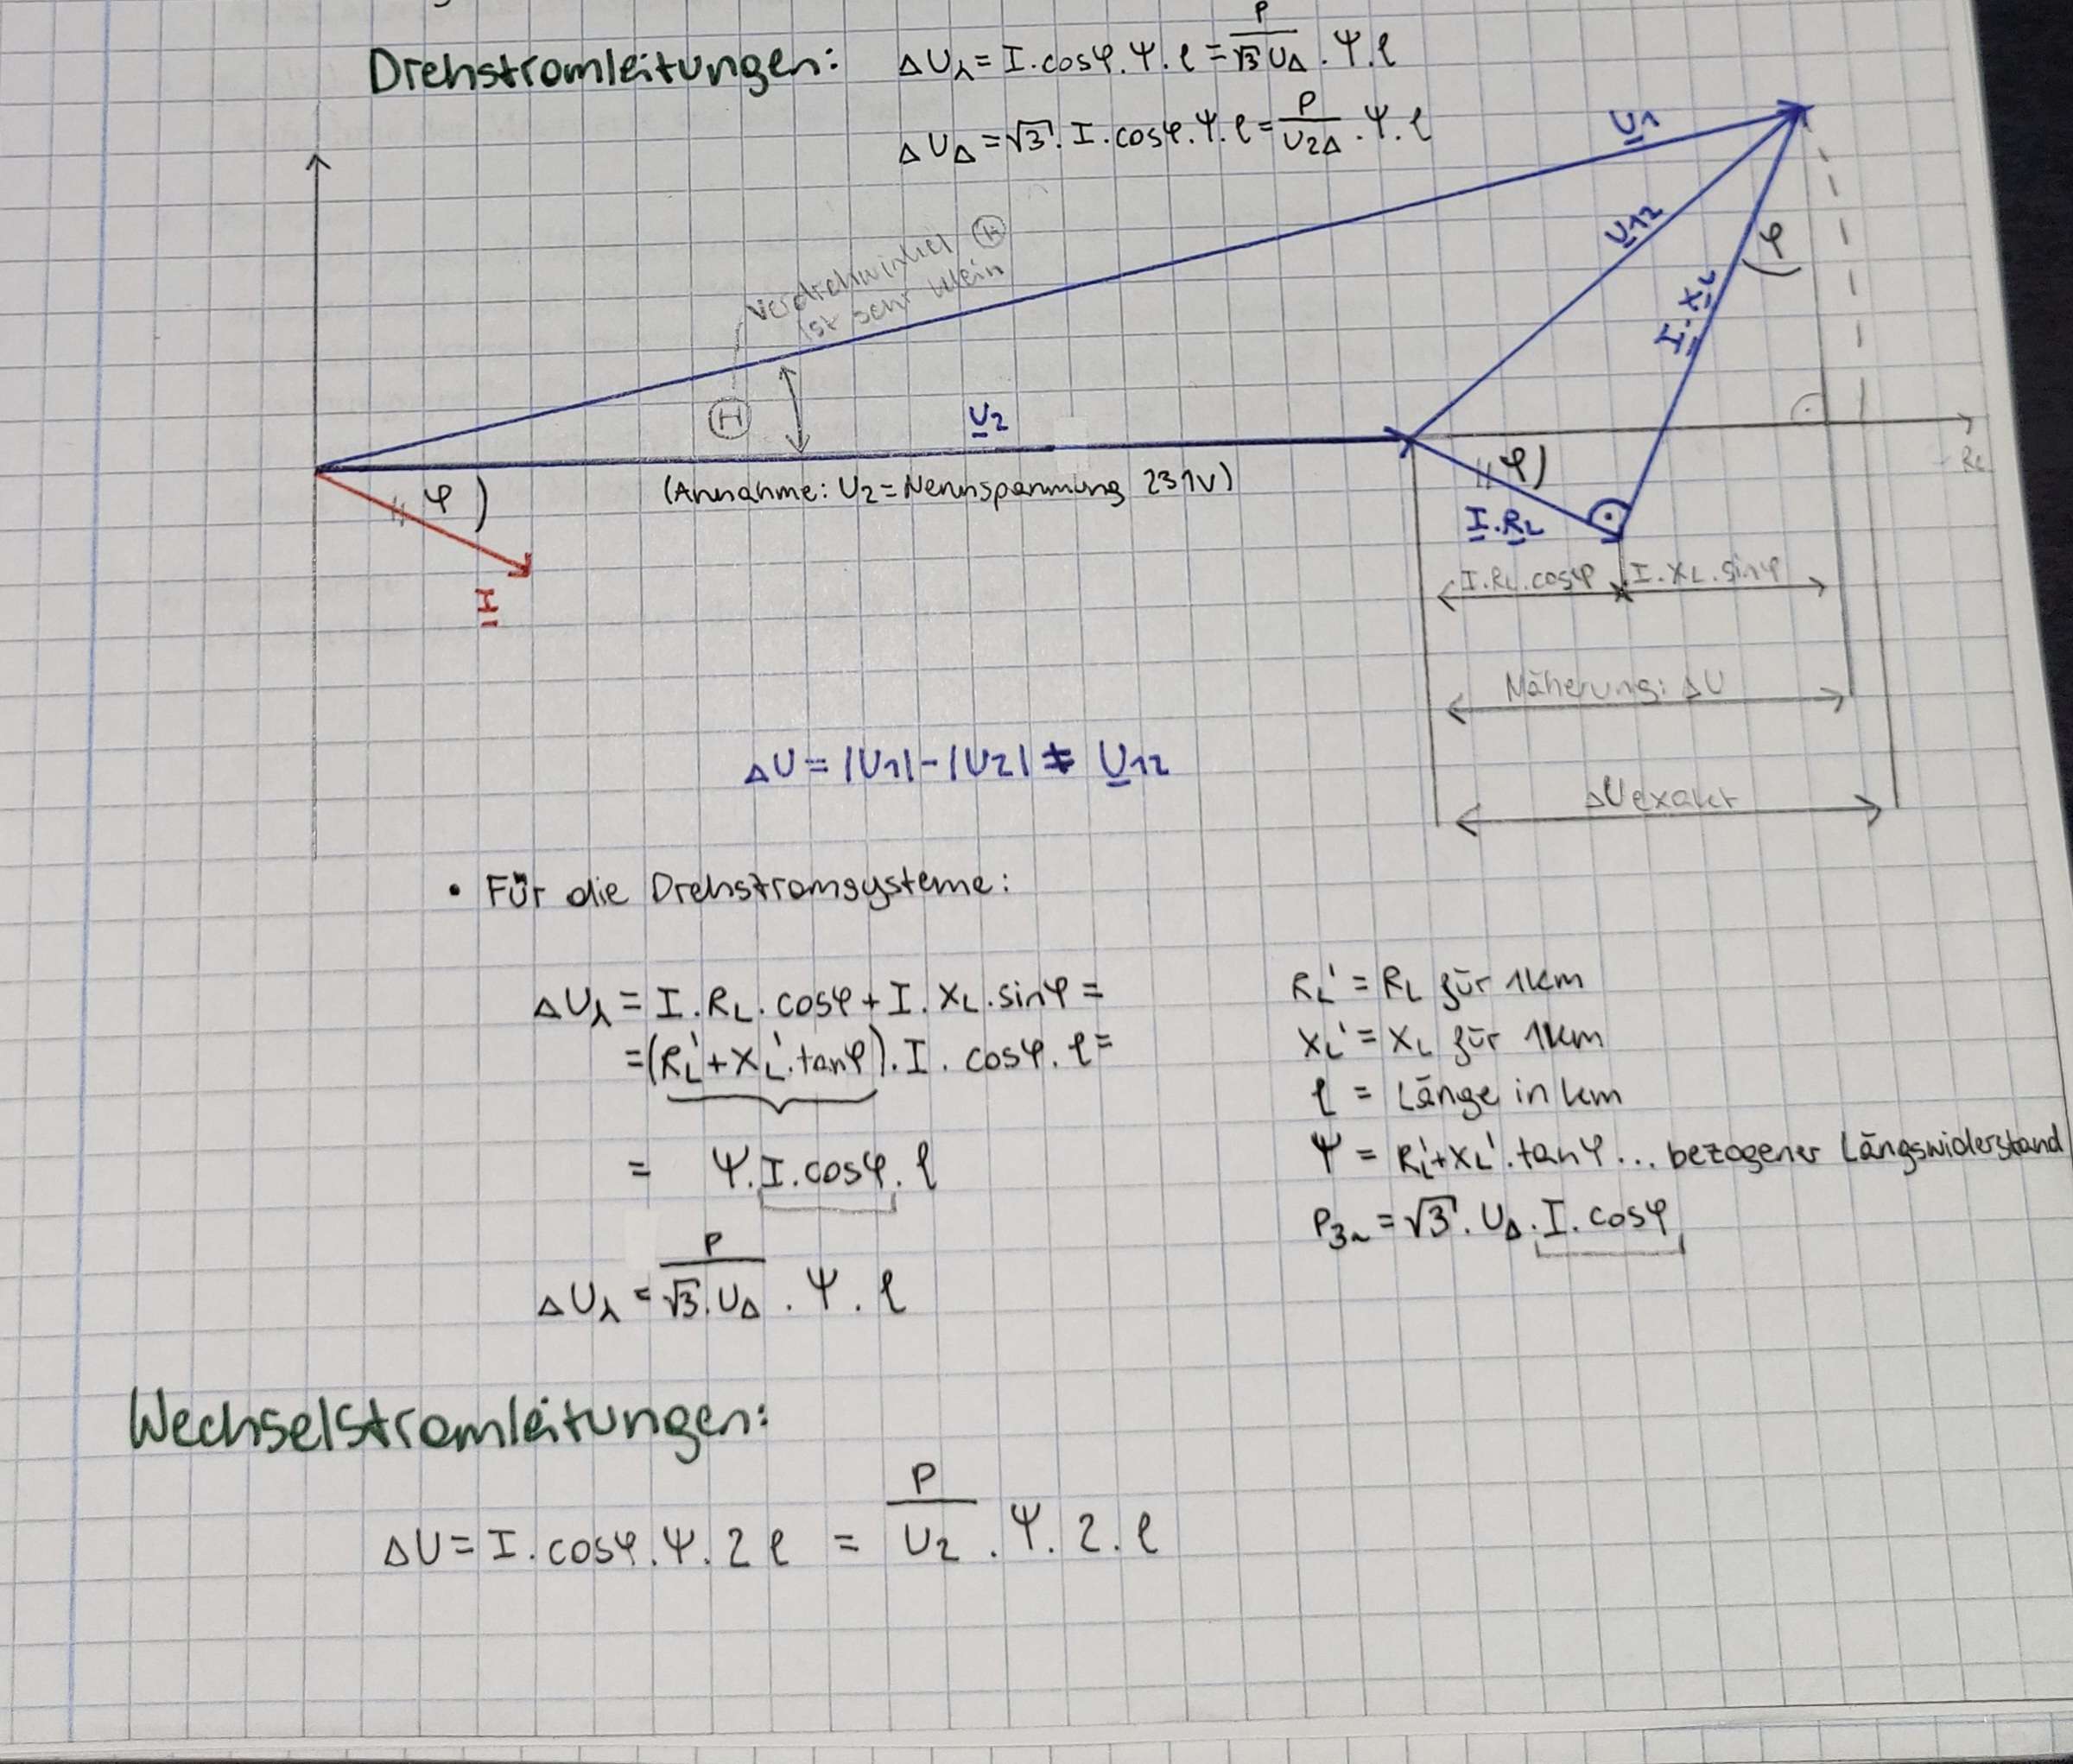 Drehstromleitungen: ΔU⅄ = I.cosφ.Ψ.l = P/(√3 UΔ) .Ψ.l
ΔUΔ = √3.I.cosφ.Ψ.l = P/U2Δ .Ψ.l
U1
U12
φ
I.XL
Verdrehwinkel Ⓗ
ist sehr klein
Ⓗ
U2
Re
(Annahme: U2 = Nennspannung 231V)
φ
φ
I.RL
I
I.RL.cosφ
I.XL.sinφ
Näherung: ΔU
ΔU = |U1| - |U2| ≠ U12
ΔUexakt
• Für die Drehstromsysteme:
ΔU⅄ = I.RL.cosφ + I.XL.sinφ =
= (RL' + XL'.tanφ).I.cosφ.l =
= Ψ.I.cosφ.l
ΔU⅄ = P/(√3.UΔ) .Ψ.l
RL' = RL für 1km
XL' = XL für 1km
l = Länge in km
Ψ = RL'+XL'.tanφ... bezogener Längswiderstand
P3~ = √3.UΔ.I.cosφ
Wechselstromleitungen:
ΔU = I.cosφ.Ψ.2l = P/U2 .Ψ.2.l